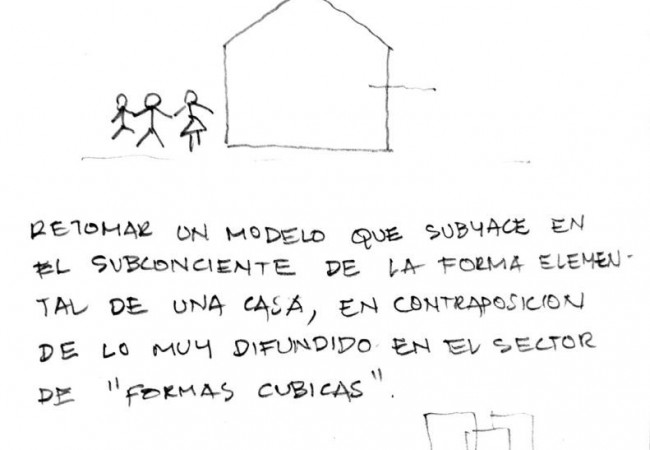 RETOMAR UN MODELO QUE SUBYACE EN
EL SUBCONCIENTE DE LA FORMA ELEMEN-
TAL DE UNA CASA, EN CONTRAPOSICION
DE LO MUY DIFUNDIDO EN EL SECTOR
DE "FORMAS CUBICAS".